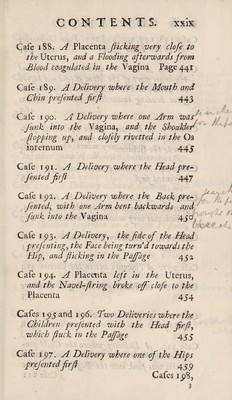 CONTENTS. xxix
Caſe 188. A Placenta ſticking very cloſe to
the Uterus, and a Flooding afterwards from
Blood coagulated in the Vagina Page 441
Caſe 189. A Delivery where the Mouth and
Chin preſented firſt 443
Caſe 190. A Delivery where one Arm was
ſunk into the Vagina, and the Shoulder
ſtopping up, and cloſely rivetted in the Os
internum 445
Caſe 191. A Delivery where the Head pre-
ſented firſt 447
Caſe 192. A Delivery where the Back pre-
ſented, with one Arm bent backwards and
ſunk into the Vagina 450
Caſe 193. A Delivery, the ſide of the Head
preſenting, the Face being turn'd towards the
Hip, and ſticking in the Paſſage 452
Caſe 194. A Placenta left in the Uterus,
and the Navel-ſtring broke off cloſe to the
Placenta 454
Caſes 195 and 196. Two Deliveries where the
Children preſented with the Head firſt,
which ſtuck in the Paſſage 455
Caſe 197. A Delivery where one of the Hips
preſented firſt 459
Caſes 198,
3